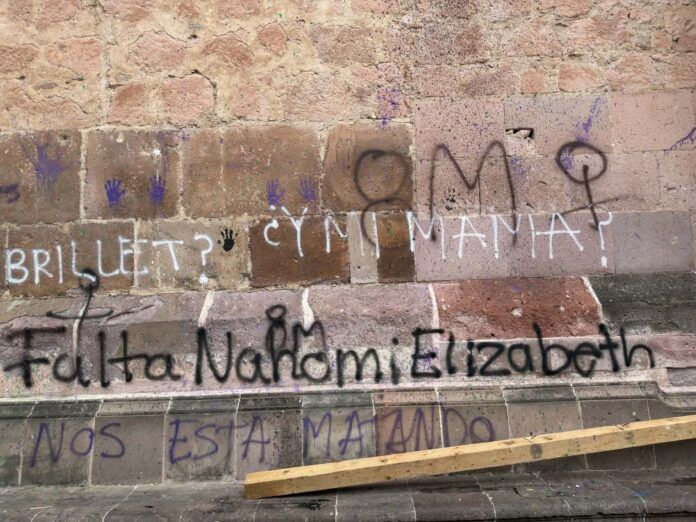 8M
BRILLET? ¿Y MI MAMA?
8M
Falta Nahomi Elizabeth
NOS ESTA MATANDO